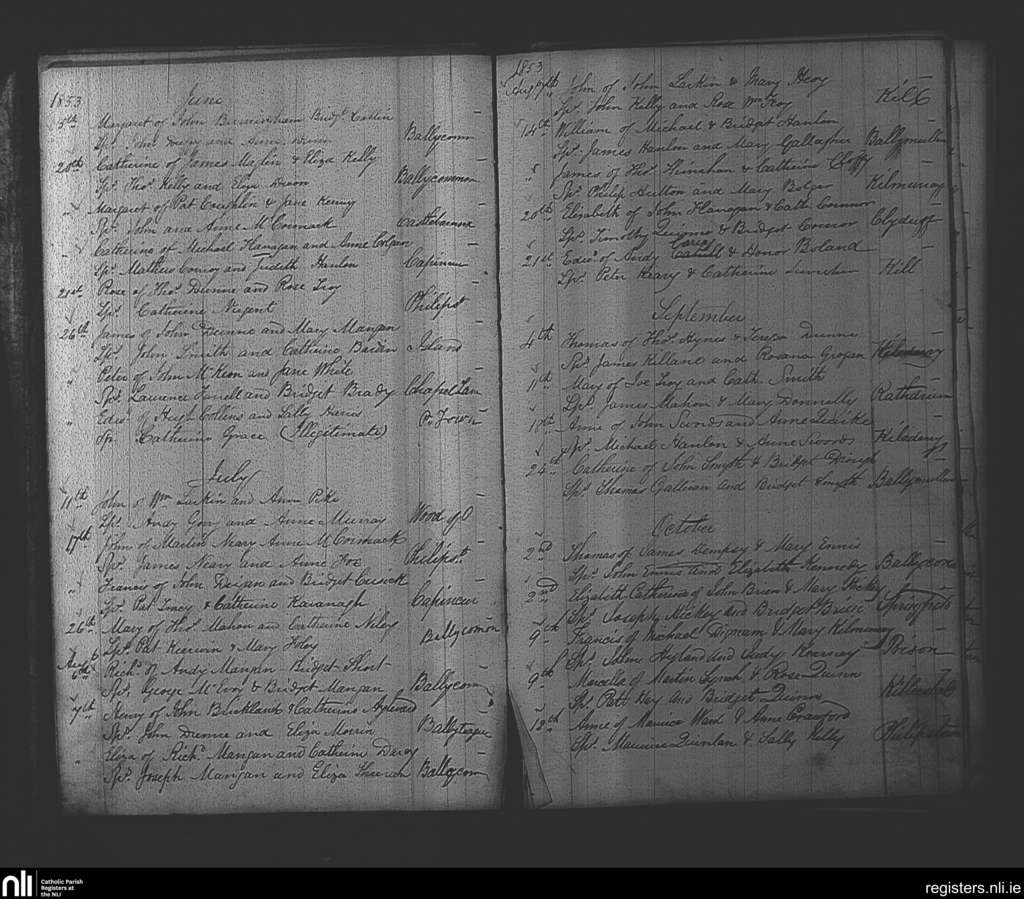 1853 June
5th Margaret of John Birmingham Bridgt Collin
Sps. and Anne Ballycomm
20th Catherine of James Maglin & Eliza Kelly
Sps. Thos. Kelly and Eliza Ballycommon
" Margaret of Pat Coughlin & Jane Kenny
Sps. John and Anne McCormack
" Catherine of Michael Flanagan and Anne Colgan
Sps. Mathew Conroy and Judith Hanlon Capincur
21st Rose of Thos. Dunne and Rose Troy
Sps. Catherine Nugent Philipst
26th James of John Dunne and Mary Mangan
Sps. John Smith and Catherine Island
" Peter of John McKeon and Jane White
Sps. Laurence Farrell and Bridget Brady
" Edwd. of Hugh Collins and Sally
Sp. Catherine Grace (Illegitimate) P. Town
July
11th John of Wm Larkin and Anne Pike
Sps. Andy and Anne Murray Wood of O
17th John of Martin Neary Anne McCormack
Sps. James Neary and Anne Fox Philipst.
" Francis of John and Bridget Cusick
Sps. Pat & Catherine Kavanagh Capincur
26th Mary of Thos. Mahon and Catherine
Sps. Pat Kierwin & Mary Foley Ballycomon
Aug 6th Richd. of Andy Mangan Bridget
Sps. George McEvoy & Bridget Mangan Ballycom
7th Henry of John & Catherine Aylward
Sps. John Dunne and Eliza Ballyteague
" Eliza of Richd. Mangan and Catherine
Sps. Joseph Mangan and Eliza Ballycom
1853
Augt 7th John of John Larkin & Mary
Sps. John Kelly and Rose Kill
14th William of Michael & Bridget Hanlon
Sps. James Hanlon and Mary Gallagher Ballymullen
" James of Thos. & Catherine Claffy
Sps. Philip Hutton and Mary Bolger Kilmurray
20th Elizabeth of John Flanagan & Cath. Connor
Sps. Timothy & Bridget Connor Clyduff
21st Edwd. of Andy Carey & Honor Boland
Sps. Peter Keary & Catherine Kill
September
4th Thomas of Thos. Hynes & Teresa Dunne
Sps. James Killane and Rosana Grogan
11th Mary of Joe Troy and Cath. Smith
Sps. James Mahon & Mary Donnelly Rathdrum
18th Anne of John Swords and Anne Quirke
Sps. Michael Hanlon & Anne Swords
24th Catherine of John Smyth & Bridget
Sps. Thomas and Bridget Smyth Ballymullen
October
2nd Thomas of James Dempsy & Mary Ennis
Sps. John Ennis and Elizabeth Kennedy
2nd Elizabeth Catherine of John Brien & Mary Hickey
Sps. Joseph Hickey and Bridget Brien Springfield
9th Francis of Michael & Mary
Sps. John Hyland and Judy Prison
9th Marcella of Martin Lynah & Rose Quinn
Sps. Patt Hay and Bridget Quinn
18th Anne of Maurice Ward & Anne Crawford
Sps. Maurice Quinlan & Sally Kelly Philipstown
nli
Catholic Parish
Registers at
the NLI
registers.nli.ie